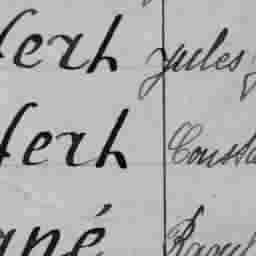 Herh Jules
Herh Consta
ané Raoul